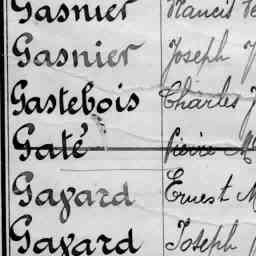 Gasnier Francis
Gasnier Joseph J
Gastebois Charles J
Gaté Pierre M
Gayard Ernest M
Gayard Joseph